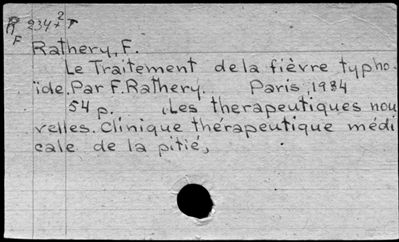 R 2347² T
F
Rathery, F.
Le Traitement de la fièvre typho-
ïde. Par F. Rathery. Paris, 1934
54 p. (Les therapeutiques nou
velles. Clinique thérapeutique médi
cale de la pitié,